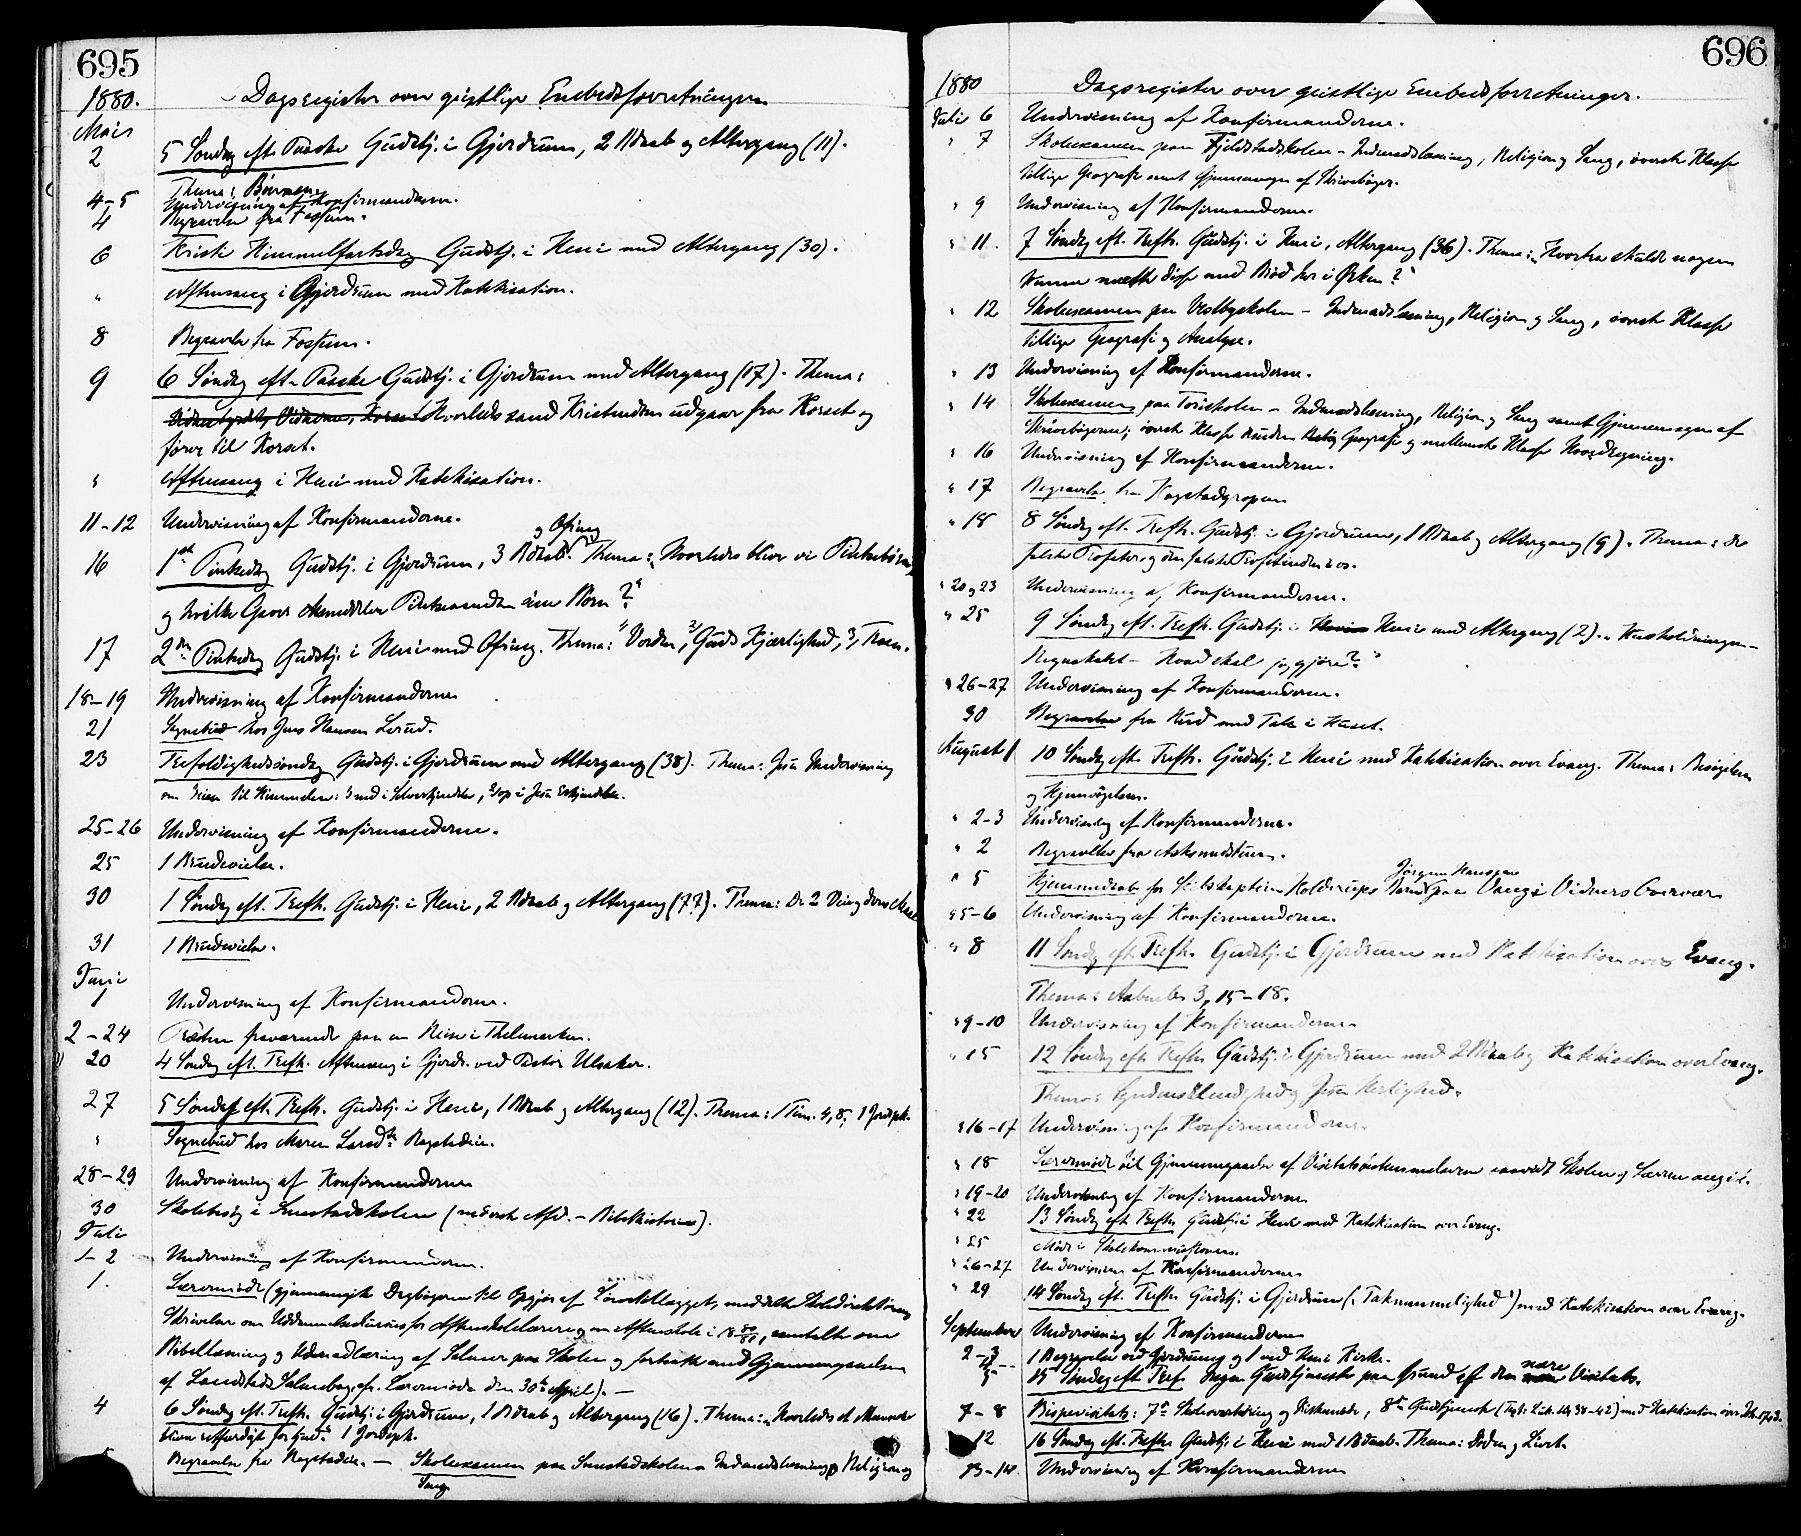 695
1880. Dagsregister over geistlige Embedsforretninger
Mai
2 5 Søndag eft. Paaske Gudstj. i Gjerdrum, 2 Ndaab og Altergang (11).
Thema: Børnene
4-5 Undervisning af Konfirmanderne.
4 Begravelse fra Fossum.
6 Kristi Himmelfartsdag Gudstj. i Heni med Altergang (30).
" Aftensang i Gjerdrum med Katekisation.
8 Begravelse fra Fossum.
9 6 Søndag eft. Paaske Gudstj. i Gjerdrum med Altergang (17). Thema:
Hvorledes sand Kristendom udgaar fra Korset og
fører til Korset.
" Aftensang i Heni med Katekisation.
11-12 Undervisning af Konfirmanderne.
og Ofring
16 1ste Pintsedag Gudstj. i Gjerdrum, 3 Ndaab. Thema: "Hvorledes blive vi Pintsebørn,
og hvilke Gaver meddeler Pintseaanden sine Børn?"
17 2den Pintsedag Gudstj. i Heni med Ofring. Thema: 1) Verden, 2) Guds Kjærlighed, 3) Troen.
18-19 Undervisning af Konfirmanderne
21 Sognebud hos Jens Hansen Lerud.
23 Trefoldighedssøndag Gudstj. i Gjerdrum med Altergang (38). Thema: Jesu Undervisning
om Veien til Himmelen: 1) ned i Selverkjendelse, 2) op i Jesu Erkjendelse.
25-26 Undervisning af Konfirmanderne.
25 1 Brudevielse.
30 1 Søndag eft. Trefh. Gudstj. i Heni, 2 Ndaab og Altergang (77). Thema: De 2 Veie og deres Maal
31 1 Brudevielse.
Juni
1 Undervisning af Konfirmanderne.
2-24 Præsten fraværende paa en Reise i Thelemarken.
20 4 Søndag eft. Trefh. Aftensang i Gjerdr. ved Pastor Ulsaker.
27 5 Søndag eft. Trefh. Gudstj. i Heni, 1 Ndaab og Altergang (12). Thema: 1 Tim. 4,8; 1 Jordpk.
" Sognebud hos Maren Larsdtr. Ragstadeie.
28-29 Undervisning af Konfirmanderne
30 Skolebesøg i Smestadskolen (nederste Afd. - Bibelhistorie).
Juli
1-2 Undervisning af Konfirmanderne.
1. Læremøde (gjennemgik Dagbøgerne til Opgjør af, meddelte Skoledirektionens
Skrivelse om Uddannelseskursus for Aftenskolelærere og om Aftenskole i, samtalte om
Bibellæsning og Udenadlæring af Salmer paa Skolen og fortsatte med Gjennemgaaelsen
af Landstads Salmebog cfr. Læremøde den 30te April). -
4 6 Søndag eft. Trefh. Gudstj. i Gjerdrum, 1 Ndaab og Altergang (16). Thema: "Hvorledes et Menneske
bliver retfærdigt for Gud." 1 Jordpk.
Begravelse fra Ragstadeie. - Skoleexamen paa Smestadskolen Indenadslæsning, Religion og
Sang
696
1880 Dagsregister over geistlige Embedsforretninger.
Juli 6 Undervisning af Konfirmanderne.
" 7 Skoleexamen paa Fjeldstadskolen - Indenadslæsning, Religion og Sang, øverste Klasse
tillige Geografi samt Gjennemsyn af Skrivebøger.
" 9 Undervisning af Konfirmanderne.
" 11. 7 Søndag eft. Trefh. Gudstj. i Heni, Altergang (36). Thema: "Hvorfra skulde nogen
kunne mætte disse med Brød her i Ørken?"
" 12 Skoleexamen paa Vestbyskolen - Indenadslæsning, Religion og Sang, øverste Klasse
tillige Geografi og Analyse.
" 13 Undervisning af Konfirmanderne.
" 14 Skoleexamen paa Toriskolen - Indenadslæsning, Religion og Sang samt Gjennemsyn af
Skrivebøgerne; øverste Klasse desuden Geografi og mellemste Klasse Hovedregning.
" 16 Undervisning af Konfirmanderne.
" 17 Begravelse fra Kogstadgropen
" 18 8 Søndag eft. Trefh. Gudstj. i Gjerdrum, 1 Ndaab og Altergang (9). Thema: de
falske Profeter og den falske Profetinde i os.
" 20 og 23 Undervisning af Konfirmanderne.
" 25 9 Søndag eft. Trefh. Gudstj. i Heni med Altergang (2). "Husholdningen -
Regnskabet - Hvad skal jeg gjøre?"
" 26-27 Undervisning af Konfirmanderne.
30 Begravelse fra Rud med Tale i Huset.
August 1 10 Søndag eft. Trefh. Gudstj. i Heni med Katekisation over Evang. Thema: Besøgelsen
og Hjemsøgelsen.
" 2-3 Undervisning af Konfirmanderne.
" 2 Begravelse fra Askmudstuen.
Jörgen Hansson
" 5 Hjemmedaab for Skibskaptein Holdrups Barn paa Vang i Vidners Overvær
" 5-6 Undervisning af Konfirmanderne.
" 8 11 Søndag eft. Trefh. Gudstj. i Gjerdrum med Katekisation over Evang.
Thema: Aabenb. 3, 15-18.
" 9-10 Undervisning af Konfirmanderne
" 15 12 Søndag eft. Trefh. Gudstj. i Gjerdrum med 2 Ndaab og Katekisation over Evang.
Thema: Syndens Elendighed og Jesu Herlighed.
" 16-17 Undervisning af Konfirmanderne.
" 18 Læremøde til Gjennemgaaelse af Visitatsskemaerne saavidt Skolen og Lærerne angik.
" 19-20 Undervisning af Konfirmanderne
" 22 13 Søndag eft. Trefh. Gudstj. i Heni med Katekisation over Evang.
" 25 Møde i Skolekommissionen.
" 26-27 Undervisning af Konfirmanderne
" 29 14 Søndag eft. Trefh. Gudstj. i Gjerdrum ("Taknemmelighed") med Katekisation over Evang.
September Undervisning af Konfirmanderne
2-3 1 Begravelse ved Gjerdrum og 1 ved Heni Kirke.
5 15 Søndag eft. Tref. Ingen Gudstjeneste paa Grund af den nære Visitats.
7-8 Bispevisitats: 7de Skoleoverhøring og Biskopmøde, 8de Gudstjeneste (Text: Luk. 10, 38-42) med Katekisation
12 16 Søndag eft. Trefh. Gudstj. i Heni med 1 Ndaab. Thema: Døden og Livet.
13-14 Undervisning af Konfirmanderne